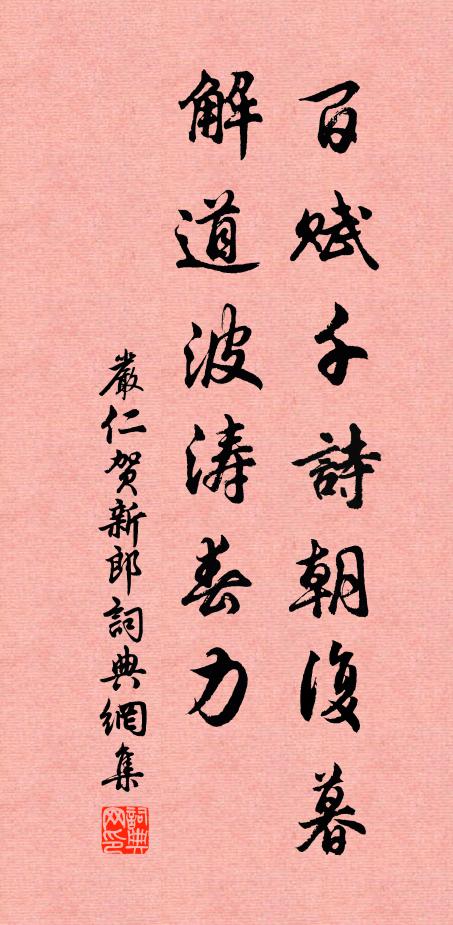 百賦千詩朝復暮
解道波涛春力
嚴仁贺新郎詞典網集
詞典网印